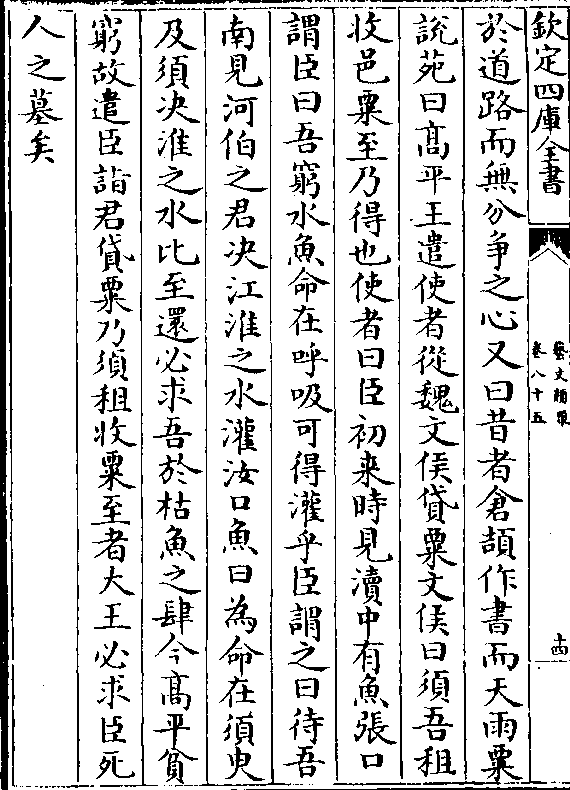 欽定四庫全書
藝文類聚
卷八十五
十四
於道路而無分爭之心又曰昔者倉頡作書而天雨粟
說苑曰髙平王遣使者從魏文侯貸粟文侯曰須吾租
收邑粟至乃得也使者曰臣初来時見瀆中有魚張口
謂臣曰吾窮水魚命在呼吸可得灌乎臣謂之曰待吾
南見河伯之君决江淮之水灌汝口魚曰為命在須臾
及須决淮之水比至還必求吾於枯魚之肆今髙平貧
窮故遣臣詣君貸粟乃須租收粟至者大王必求臣死
人之墓矣